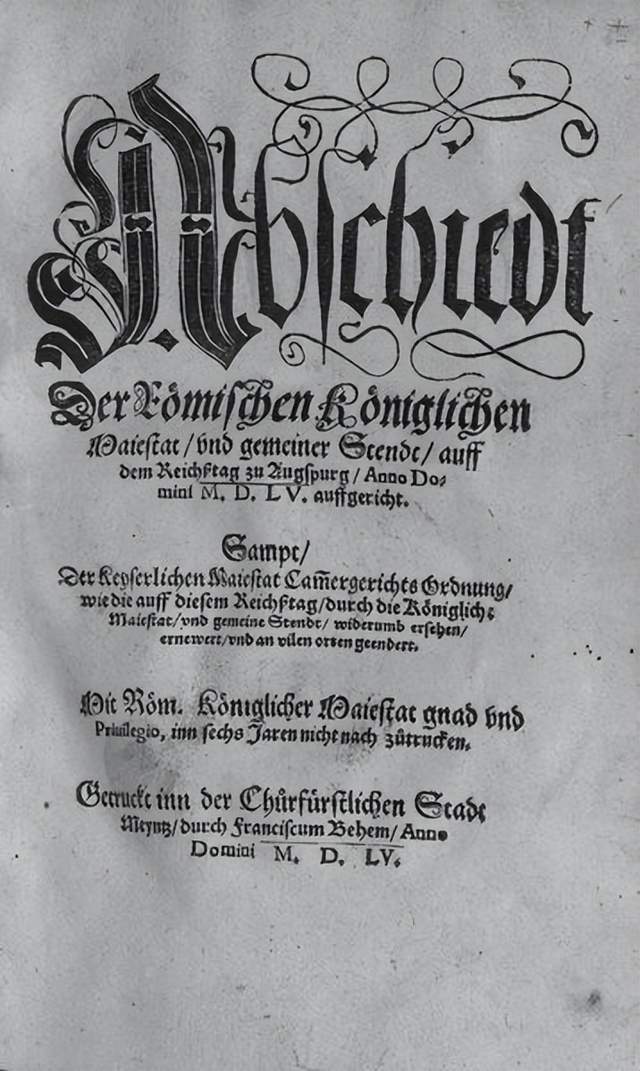 Abschiedt
Der Römischen Königlichen
Maiestat / vnd gemeiner Stende / auff
dem Reichßtag zu Augspurg / Anno Do⸗
mini M. D. LV. auffgericht.
Sampt /
Der Keyserlichen Maiestat Cam̃ergerichts Ordnung /
wie die auff diesem Reichßtag / durch die Königlich⸗
Maiestat / vnd gemeine Stende / widerumb ersehen /
ernewert / vnd an vilen orten geendert.
Mit Röm. Königlicher Maiestat gnad vnd
Priuilegio, inn sechs Jaren nicht nach zůtrucken.
Getruckt inn der Chůrfürstlichen Stadt
Meyntz / durch Franciscum Behem / Anno
Domini M. D. LV.